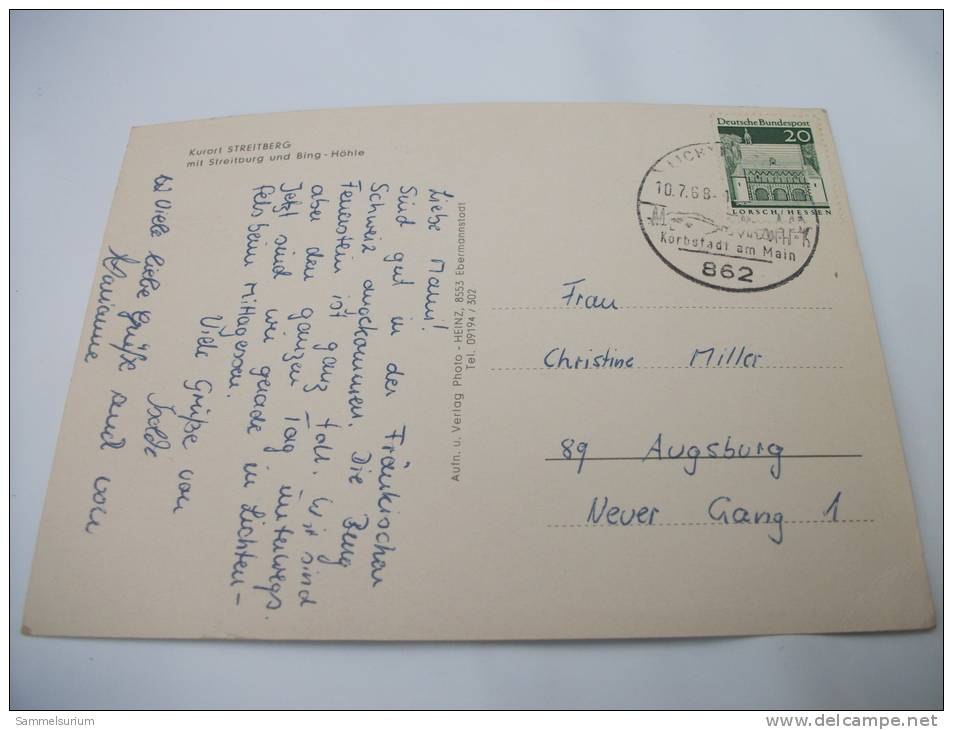 Kurort STREITBERG
mit Streitburg und Bing-Höhle
Liebe Mami!
Sind gut in der Fränkischen
Schweiz angekommen. Die Burg
Feuerstein ist ganz toll. Wir sind
aber den ganzen Tag unterwegs.
Jetzt sind wir gerade in Lichten-
fels beim Mittagessen.
Viele Grüße von
Isolde
Viele liebe Grüße
Marianne
Aufn. u. Verlag Photo - HEINZ, 8553 Ebermannstadt
Tel. 09194 / 302
Deutsche Bundespost
20
LORSCH/HESSEN
10.7.68-1
Korbstadt am Main
862
Frau
Christine Miller
89 Augsburg
Neuer Gang 1
Sammelsurium
www.delcampe.net